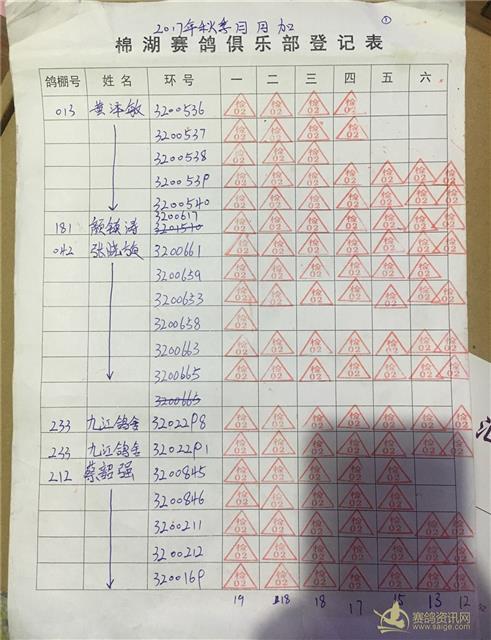 2017年秋季
①
棉湖赛鸽俱乐部登记表
鸽棚号 姓名 环号 一 二 三 四 五 六
013 黄泽敏 3200536 检02 检02 检02 检02
3200537 检02 检02 检02 检02
3200538 检02 检02 检02
3200539 检02 检02 检02 检02 检02 检02 检02
3200540 检02 检02 检02 检02 检02 检02 检02
3200617
181 颜镇涛 3201510 检02 检02 检02 检02 检02 检02 检02
042 3200661 检02 检02 检02 检02 检02 检02 检02
3200659 检02 检02 检02 检02 检02
3200653 检02 检02 检02 检02 检02 检02
3200658 检02
3200663 检02 检02 检02 检02 检02 检02 检02
3200665 检02 检02 检02 检02 检02 检02 检02
3200663
233 九江鸽舍 3202298 检02 检02 检02 检02 检02 检02 检02
233 九江鸽舍 3202291 检02 检02 检02 检02 检02 检02 检02
212 蔡韶强 3200845 检02 检02 检02 检02 检02
3200846 检02 检02 检02 检02
3200211 检02 检02 检02 检02 检02 检02
3200212 检02 检02 检02 检02 检02 检02
3200169 检02 检02 检02 检02 检02 检02 检02
19 18 18 17 15 13 12
赛鸽资讯网
www.saige.com